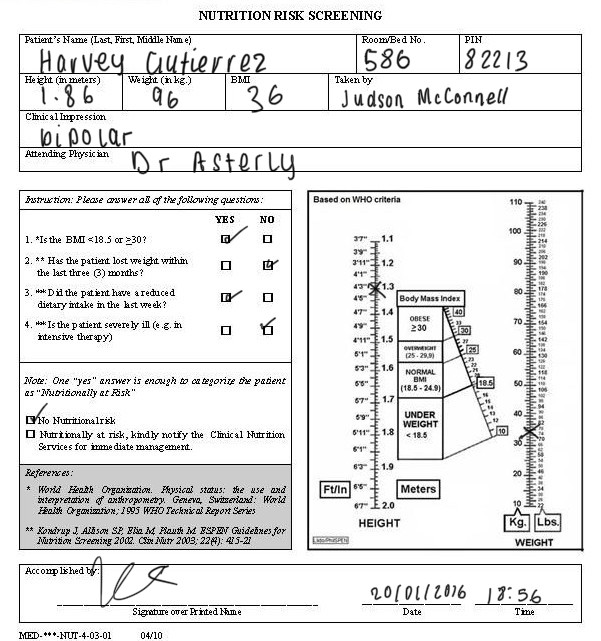 NUTRITION RISK SCREENING
Patient's Name (Last, First, Middle Name) Room/Bed No. PIN
Harvey Gutierrez 586 82213
Height (in meters) Weight (in kg.) BMI Taken by
1.86 96 36 Judson McConnell
Clinical Impression
bipolar
Attending Physician Dr Asterly
Instruction: Please answer all of the following questions:
YES NO
1. *Is the BMI <18.5 or ≥30?
2. ** Has the patient lost weight within
the last three (3) months?
3. **Did the patient have a reduced
dietary intake in the last week?
4. **Is the patient severely ill (e.g. in
intensive therapy)
Note: One "yes" answer is enough to categorize the patient
as "Nutritionally at Risk"
No Nutritional risk
Nutritionally at risk, kindly notify the Clinical Nutrition
Services for immediate management.
References:
* World Health Organization. Physical status: the use and
interpretation of anthropometry. Geneva, Switzerland: World
Health Organization; 1995 WHO Technical Report Series
** Kondrup J, Allison SP, Elia M, Plauth M. ESPEN Guidelines for
Nutrition Screening 2002. Clin Nutr 2003; 22(4): 415-21
Based on WHO criteria
3'7" 1.1
3'9"
3'11" 1.2
4'1"
4'3" 1.3
4'5"
4'7" 1.4
4'9"
4'11" 1.5
5'1"
5'3" 1.6
5'5"
5'7" 1.7
5'9"
5'11" 1.8
6'1"
6'3" 1.9
6'5"
6'7" 2.0
Ft/In Meters
HEIGHT
Body Mass Index
OBESE
≥30
OVERWEIGHT
(25 - 29,9)
NORMAL
BMI
(18.5 - 24.9)
UNDER
WEIGHT
< 18.5
40
30
25
18.5
10
110
100
90
80
70
60
50
40
30
20
10
Kg. Lbs.
WEIGHT
Accomplished by:
Signature over Printed Name
20/01/2016 18:56
Date Time
MED-***-NUT-4-03-01 04/10